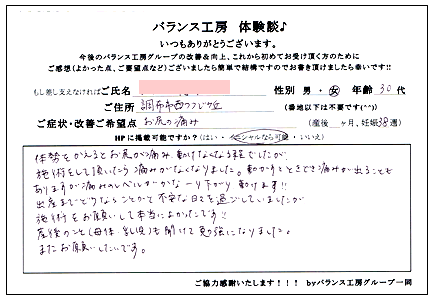 バランス工房 体験談♪
いつもありがとうございます。
今後のバランス工房グループの改善&向上、これから初めてお受け頂く方のために
ご感想(よかった点、ご要望点など)ございましたら簡単で結構ですのでお書き頂けましたら幸いです!!
もし差し支えなければご氏名 性別 男・女 年齢 30 代
ご住所 調布市西つつじヶ丘 (番地以下は不要です(^^))
ご症状・改善ご希望点 お尻の痛み (産後 ヶ月、妊娠38週)
HPに掲載可能ですか?(はい・イニシャルなら可能・いいえ)
体勢をかえるとお尻が痛み、動けなくなる程でしたが、
施術をして頂いたら痛みがなくなりました。動かすときどき痛みが出ることも
ありますが痛みのレベルがかな〜り下がり動けます!!
出産までどうなることかと不安な日々を過ごしていましたが
施術をお願いして本当によかったです!!
産後のこと(母体・乳児)も聞けて勉強になりました。
またお願いしたいです。
ご協力感謝いたします!!! byバランス工房グループ一同